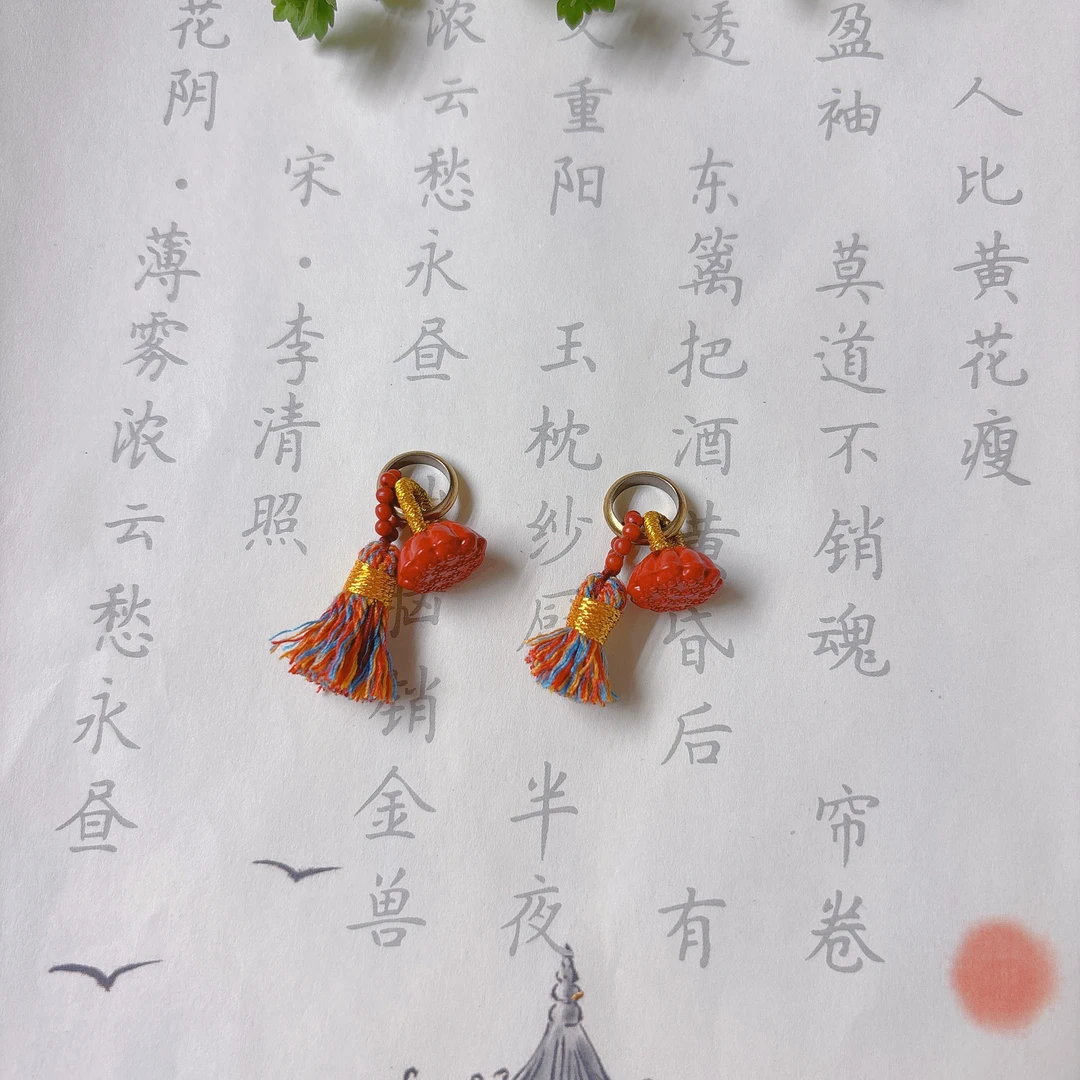 花阴·薄雾浓云愁永昼
宋·李清照
浓云愁永昼 脑销金兽
又重阳 玉枕纱 半夜
透 东篱把酒黄昏后 有
盈袖 莫道不销魂 帘卷
人比黄花瘦